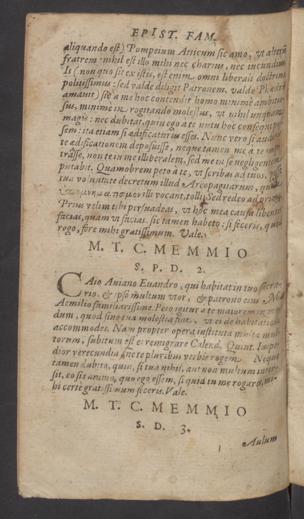 EPIST. FAM.
aliquando est) Pompeium Atticum sic amo, ut alterum
fratrem: nihil est illo mihi nec charius, nec iucundius.
Is (non quo sit ex istis, est enim omni liberali doctrina
politissimus: sed valde diligit Patronem, valde Phædrum
amavit) sic à me hoc contendit homo minimè ambitio-
sus, minimè in rogando molestus, ut nihil unquam
magis: nec dubitat, quin ego à te nutu hoc consequi pos-
sem: etiam si ædificaturus esses. Nunc verò si audierit,
te ædificationem deposuisse, neque tamen me à te impe-
trasse, non te in me illiberalem, sed me in se negligentem
putabit. Quamobrem peto à te, ut scribas ad tuos, posse
tua voluntate decretum illud Areopagitarum, quem
illi vocant, tolli. Sed redeo ad prima.
Prius velim tibi persuadeas, ut hoc mea causa libenter
facias, quàm ut facias. sic tamen habeto: si feceris, quod
rogo, fore mihi gratissimum. Vale.
M. T. C. MEMMIO
S. P. D. 2.
CAio Aviano Evandro, qui habitat in tuo sacra-
rio, & ipso multum utor, & patrono eius M.
Aemilio familiarissimè. Peto igitur à te maiorem in mo-
dum, quod sine tua molestia fiat, ut ei de habitatione
accommodes. Nam propter opera instituta multa mul-
torum, subitum est ei remigrare Calend. Quint. Impe-
dior verecundia, ne te pluribus verbis rogem. Neque
tamen dubito, quin, si tua nihil, aut non multum inter-
sit, eo sis animo, quo ego essem, si quid tu me rogares. mi-
hi certè gratissimum feceris. Vale.
M. T. C. MEMMIO
S. D. 3.
Aulum